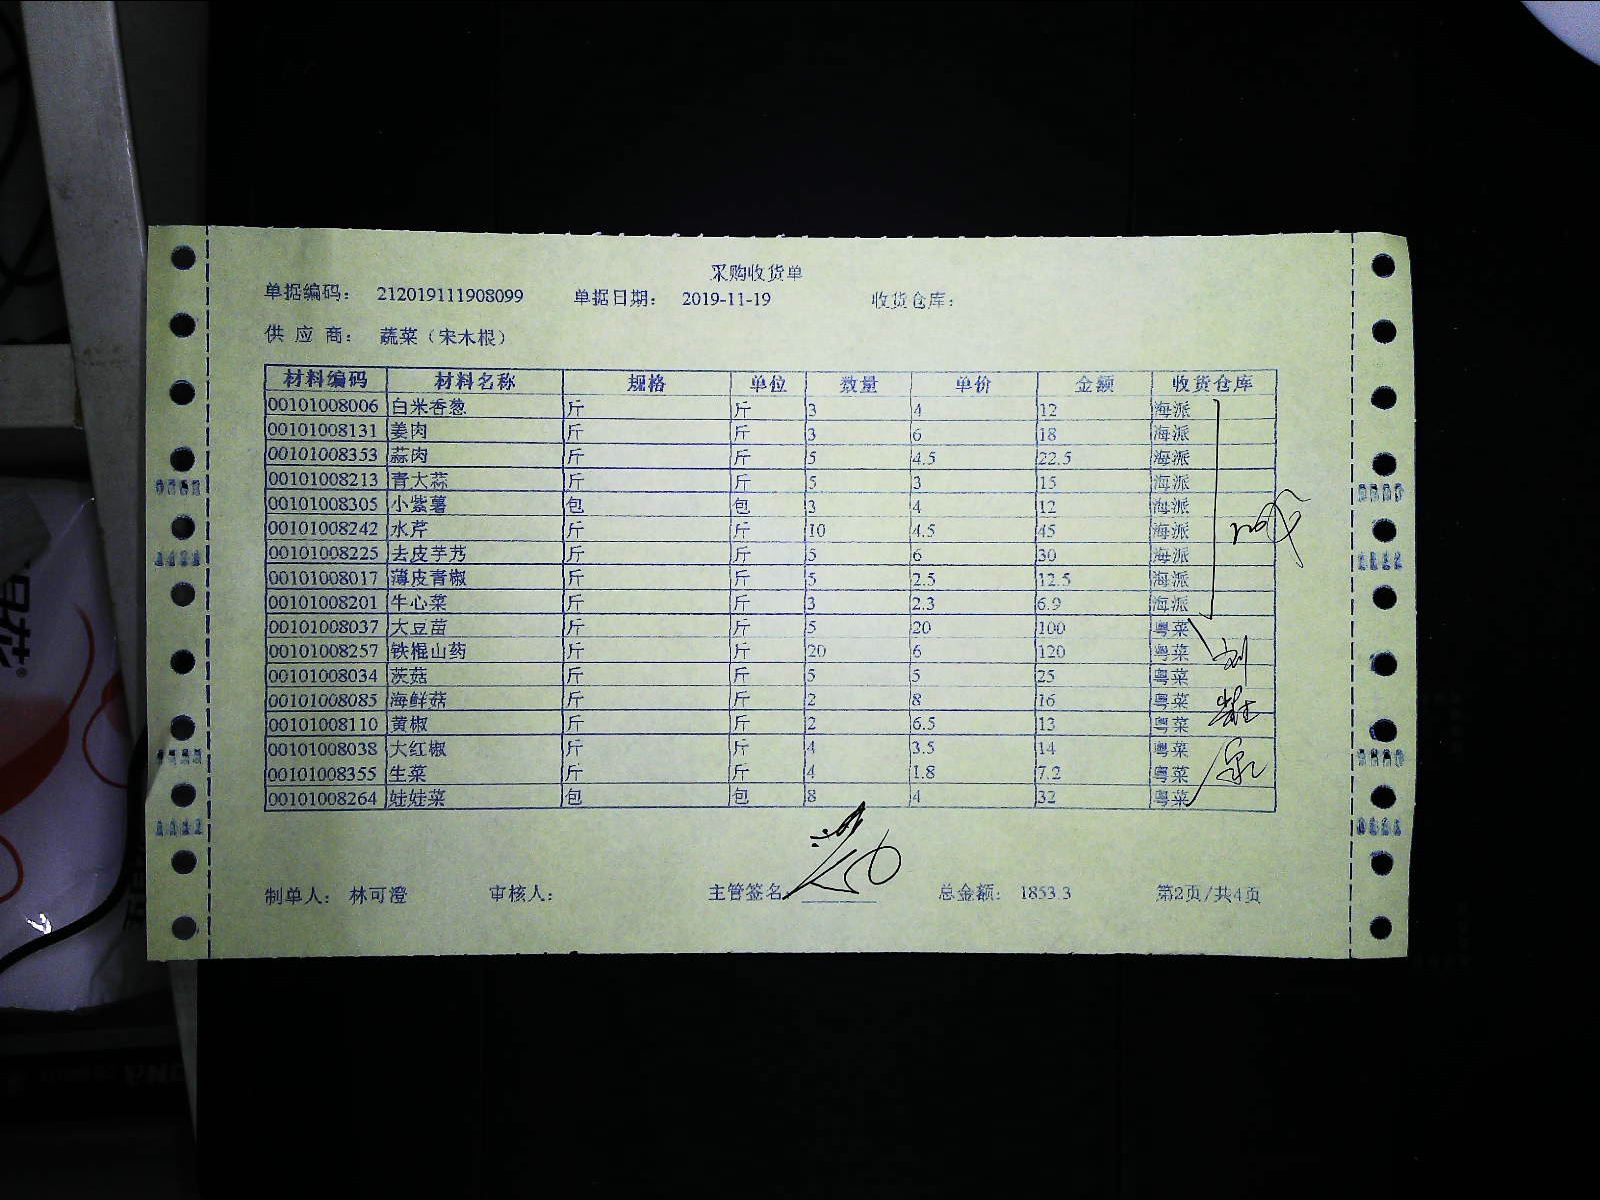 采购收货单
单据编码： 212019111908099 单据日期： 2019-11-19 收货仓库：
供 应 商： 蔬菜（宋木根）
材料编码 材料名称 规格 单位 数量 单价 金额 收货仓库
00101008006 白米香葱 斤 斤 3 4 12 海派
00101008131 姜肉 斤 斤 3 6 18 海派
00101008353 蒜肉 斤 斤 5 4.5 22.5 海派
00101008213 青大蒜 斤 斤 5 3 15 海派
00101008305 小紫薯 包 包 3 4 12 海派
00101008242 水芹 斤 斤 10 4.5 45 海派
00101008225 去皮芋艿 斤 斤 5 6 30 海派
00101008017 薄皮青椒 斤 斤 5 2.5 12.5 海派
00101008201 牛心菜 斤 斤 3 2.3 6.9 海派
00101008037 大豆苗 斤 斤 5 20 100 粤菜
00101008257 铁棍山药 斤 斤 20 6 120 粤菜
00101008034 茨菇 斤 斤 5 5 25 粤菜
00101008085 海鲜菇 斤 斤 2 8 16 粤菜
00101008110 黄椒 斤 斤 2 6.5 13 粤菜
00101008038 大红椒 斤 斤 4 3.5 14 粤菜
00101008355 生菜 斤 斤 4 1.8 7.2 粤菜
00101008264 娃娃菜 包 包 8 4 32 粤菜
制单人： 林可澄 审核人： 主管签名： 总金额： 1853.3 第2页/共4页